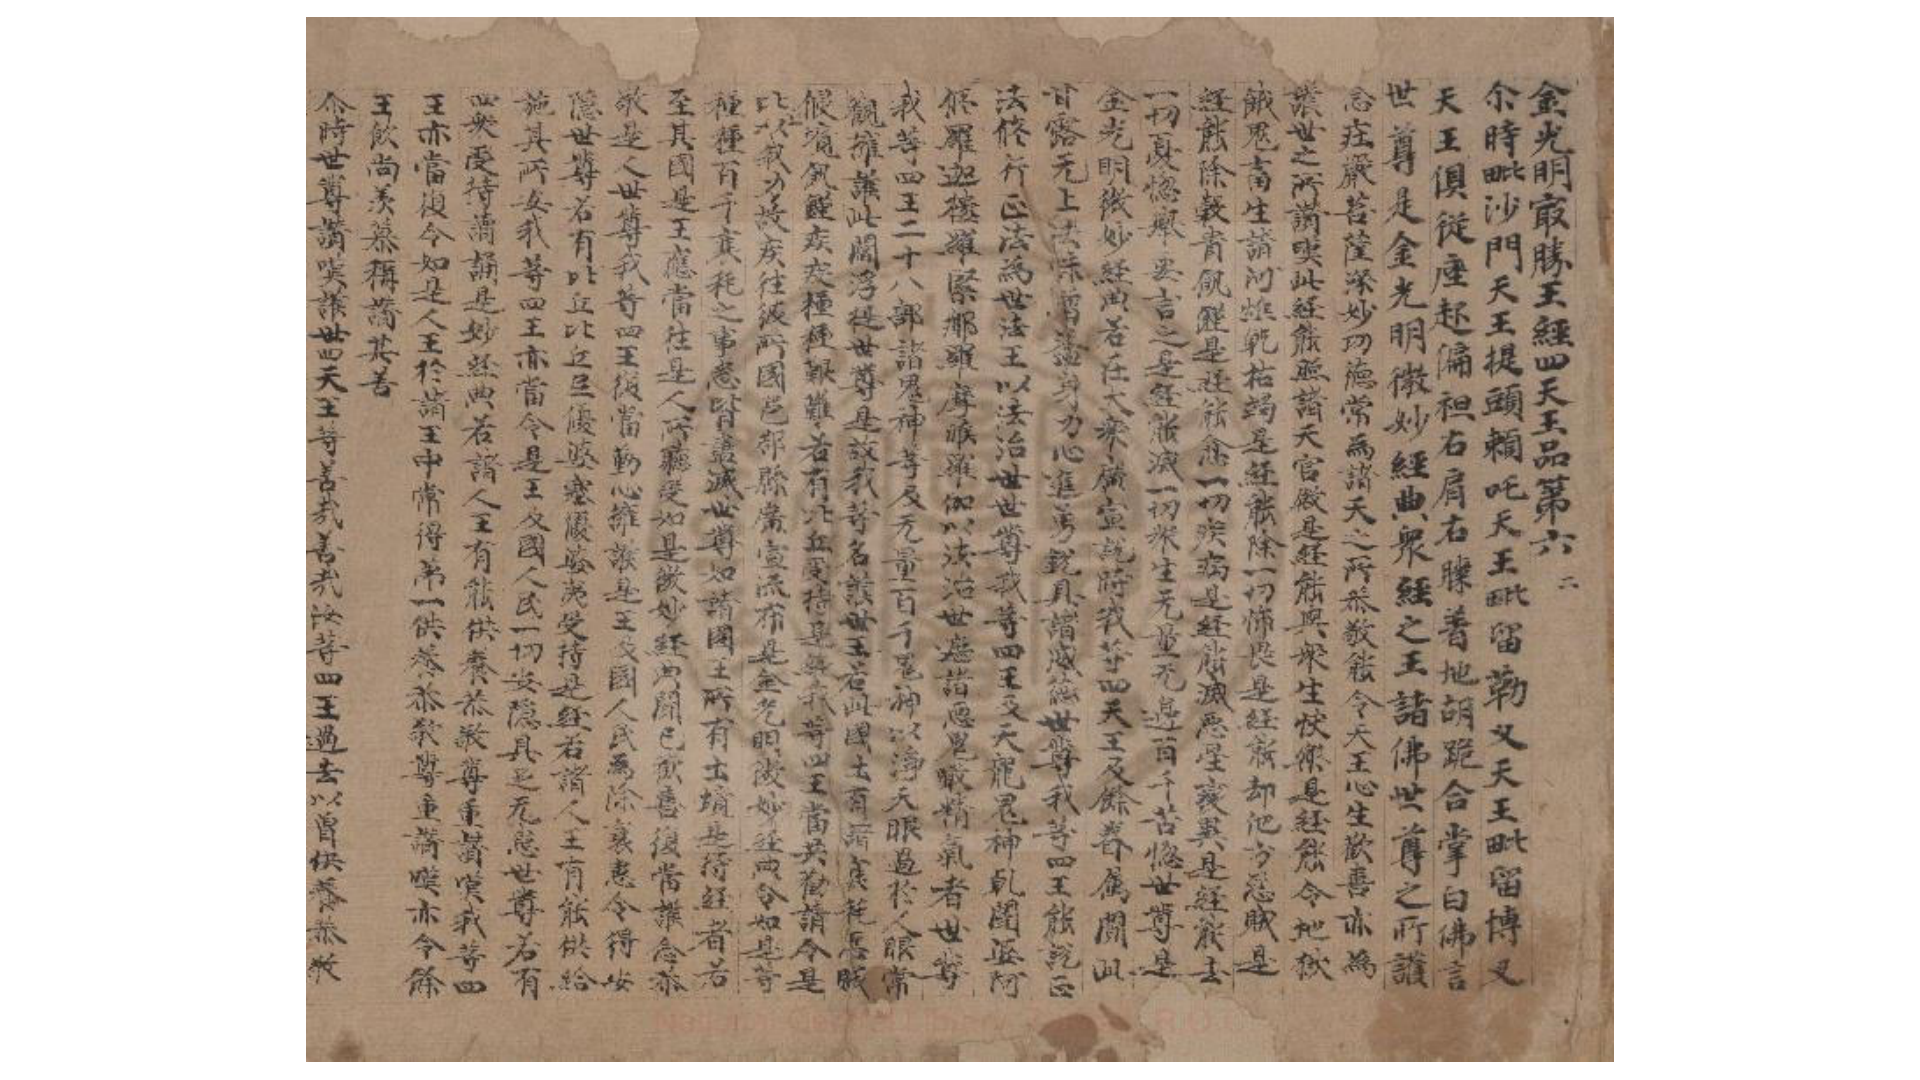 金光明冣勝王經四天王品第六 二
尒時毗沙門天王提頭賴吒天王毗留勒叉天王毗留博叉
天王俱從座起偏袒右肩右膝著地胡跪合掌白佛言
世尊是金光明微妙經典衆經之王諸佛世尊之所護
念莊嚴菩薩深妙功德常為諸天之所恭敬能令天王心生歡喜亦為
護世之所讚嘆此經能照諸天宮殿是經能與衆生快樂是經能令地獄
餓鬼畜生諸河燋乾枯竭是經能除一切怖畏是經能却他方怨賊是
經能除穀貴飢饉是經能愈一切疾病是經能滅惡星變異是經能去
一切憂惱舉要言之是經能滅一切衆生无量无邊百千苦惱世尊是
金光明微妙經典若在大衆廣宣說時我等四天王及餘眷属聞此
甘露无上法味增益身力心進勇銳具諸威德世尊我等四王能說正
法修行正法為世法王以法治世世尊我等四王及天龍鬼神乹闥婆阿
修羅迦樓羅緊那羅摩睺羅伽以法治世遮諸惡鬼噉精氣者世尊
我等四王二十八部諸鬼神等及无量百千鬼神以淨天眼過於人眼常
觀擁護此閻浮提世尊是故我等名護世王若此國土有諸衰耗怨賊
侵境飢饉疾疫種種艱難若有比丘受持是經我等四王當共勸請令是
比丘以我力故疾往彼所國邑郡縣廣宣流布是金光明微妙經典令如是等
種種百千衰耗之事悉皆滅世尊如諸國王所有土境是持經者若
至其國是王應當往是人所聽受如是微妙經典聞已歡喜復當護念恭
敬是人世尊我等四王復當勤心擁護是王及國人民為除衰患令得安
隱世尊若有比丘比丘尼優婆塞優婆夷受持是經若諸人王有能供給
施其所安我等四王亦當令是王及國人民一切安隱具足无患世尊若有
四衆受持讀誦是妙經典若諸人王有能供養恭敬尊重讚嘆我等四
王亦當復令如是人王於諸王中常得第一供養恭敬尊重讚嘆亦令餘
王飲尚羨慕稱讚其善
尒時世尊讚嘆護世四天王等善哉善哉汝等四王過去以曾供養恭敬
National Central Library, R.O.C